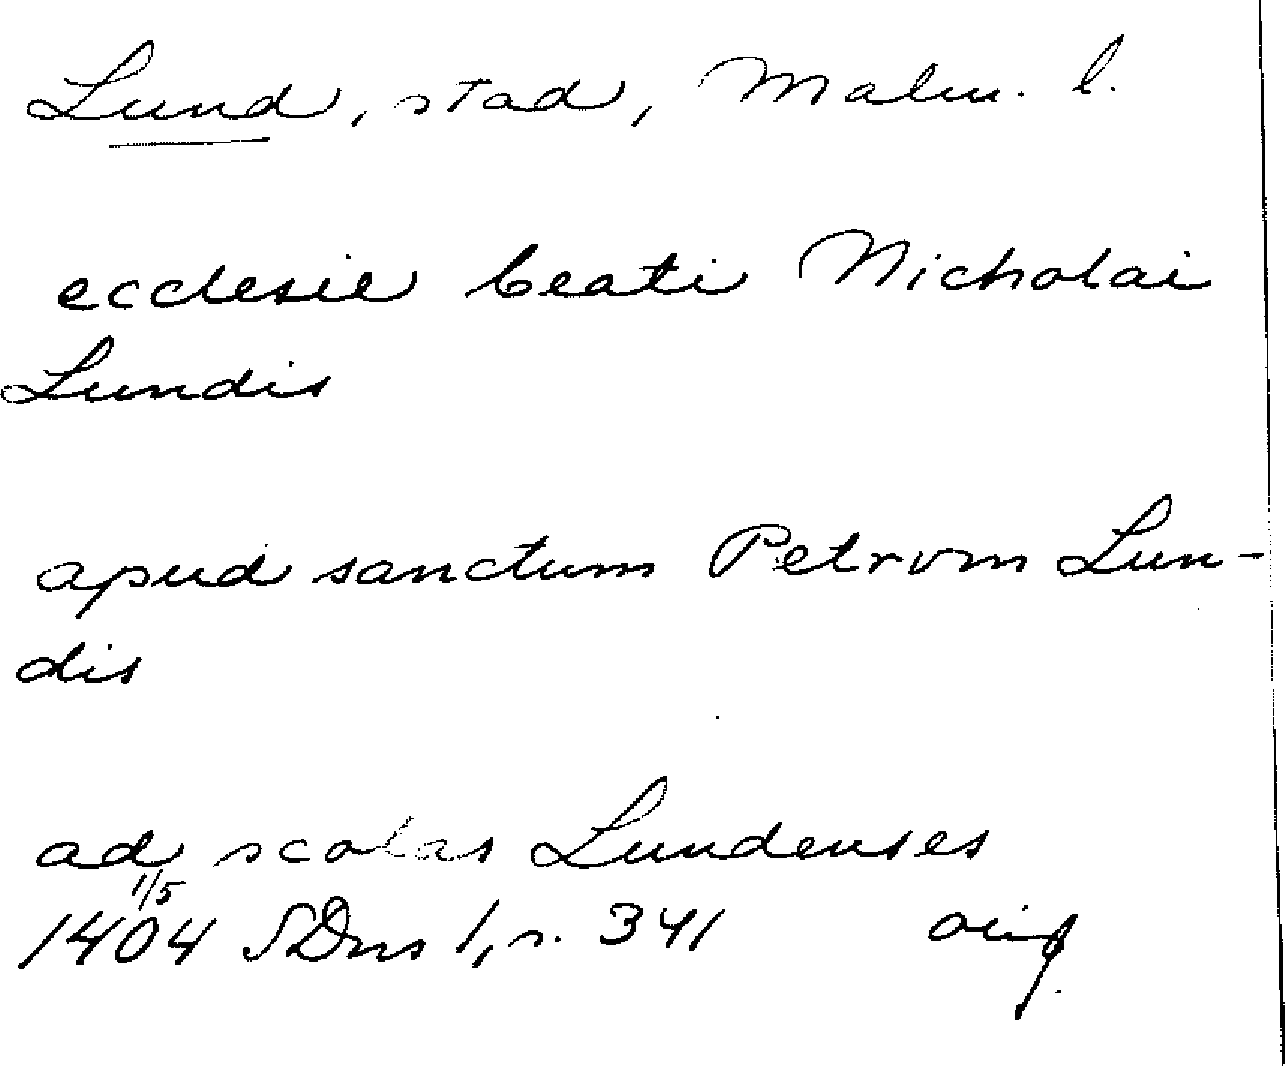 Lund, stad, Malm. l.
ecclesie beati Nicholai
Lundis
apud sanctum Petrvm Lun-
dis
ad scolas Lundenses
1/5
1404 SDns 1, s. 341 orig